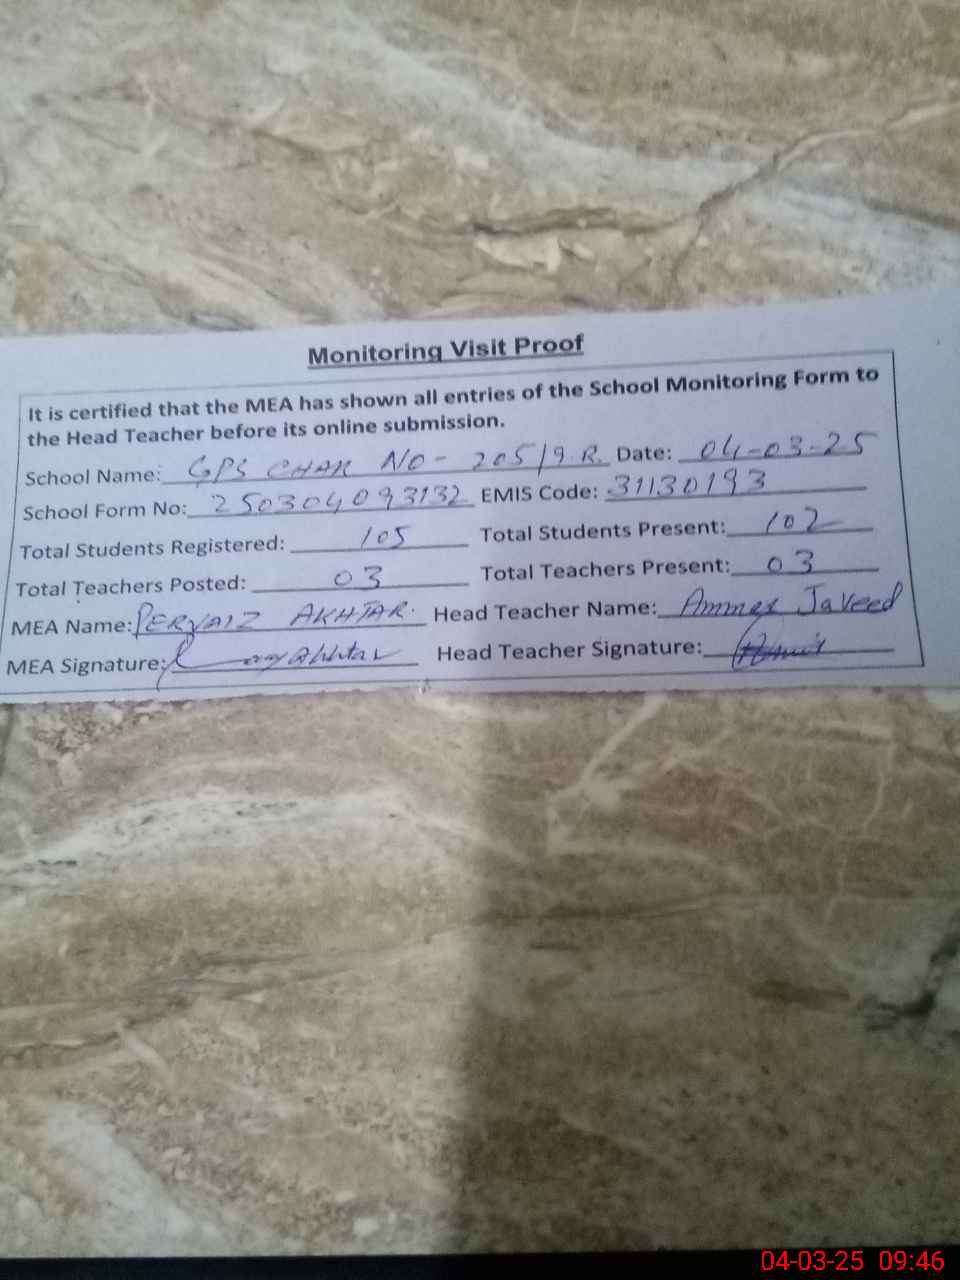 Monitoring Visit Proof
It is certified that the MEA has shown all entries of the School Monitoring Form to
the Head Teacher before its online submission.
School Name: GPS CHAK NO- 205/9.R. Date: 04-03-25
School Form No: 250304093132 EMIS Code: 31130193
Total Students Registered: 105 Total Students Present: 102
Total Teachers Posted: 03 Total Teachers Present: 03
MEA Name: PERVAIZ AKHTAR. Head Teacher Name: Javeed
MEA Signature: Head Teacher Signature:
04-03-25 09:46